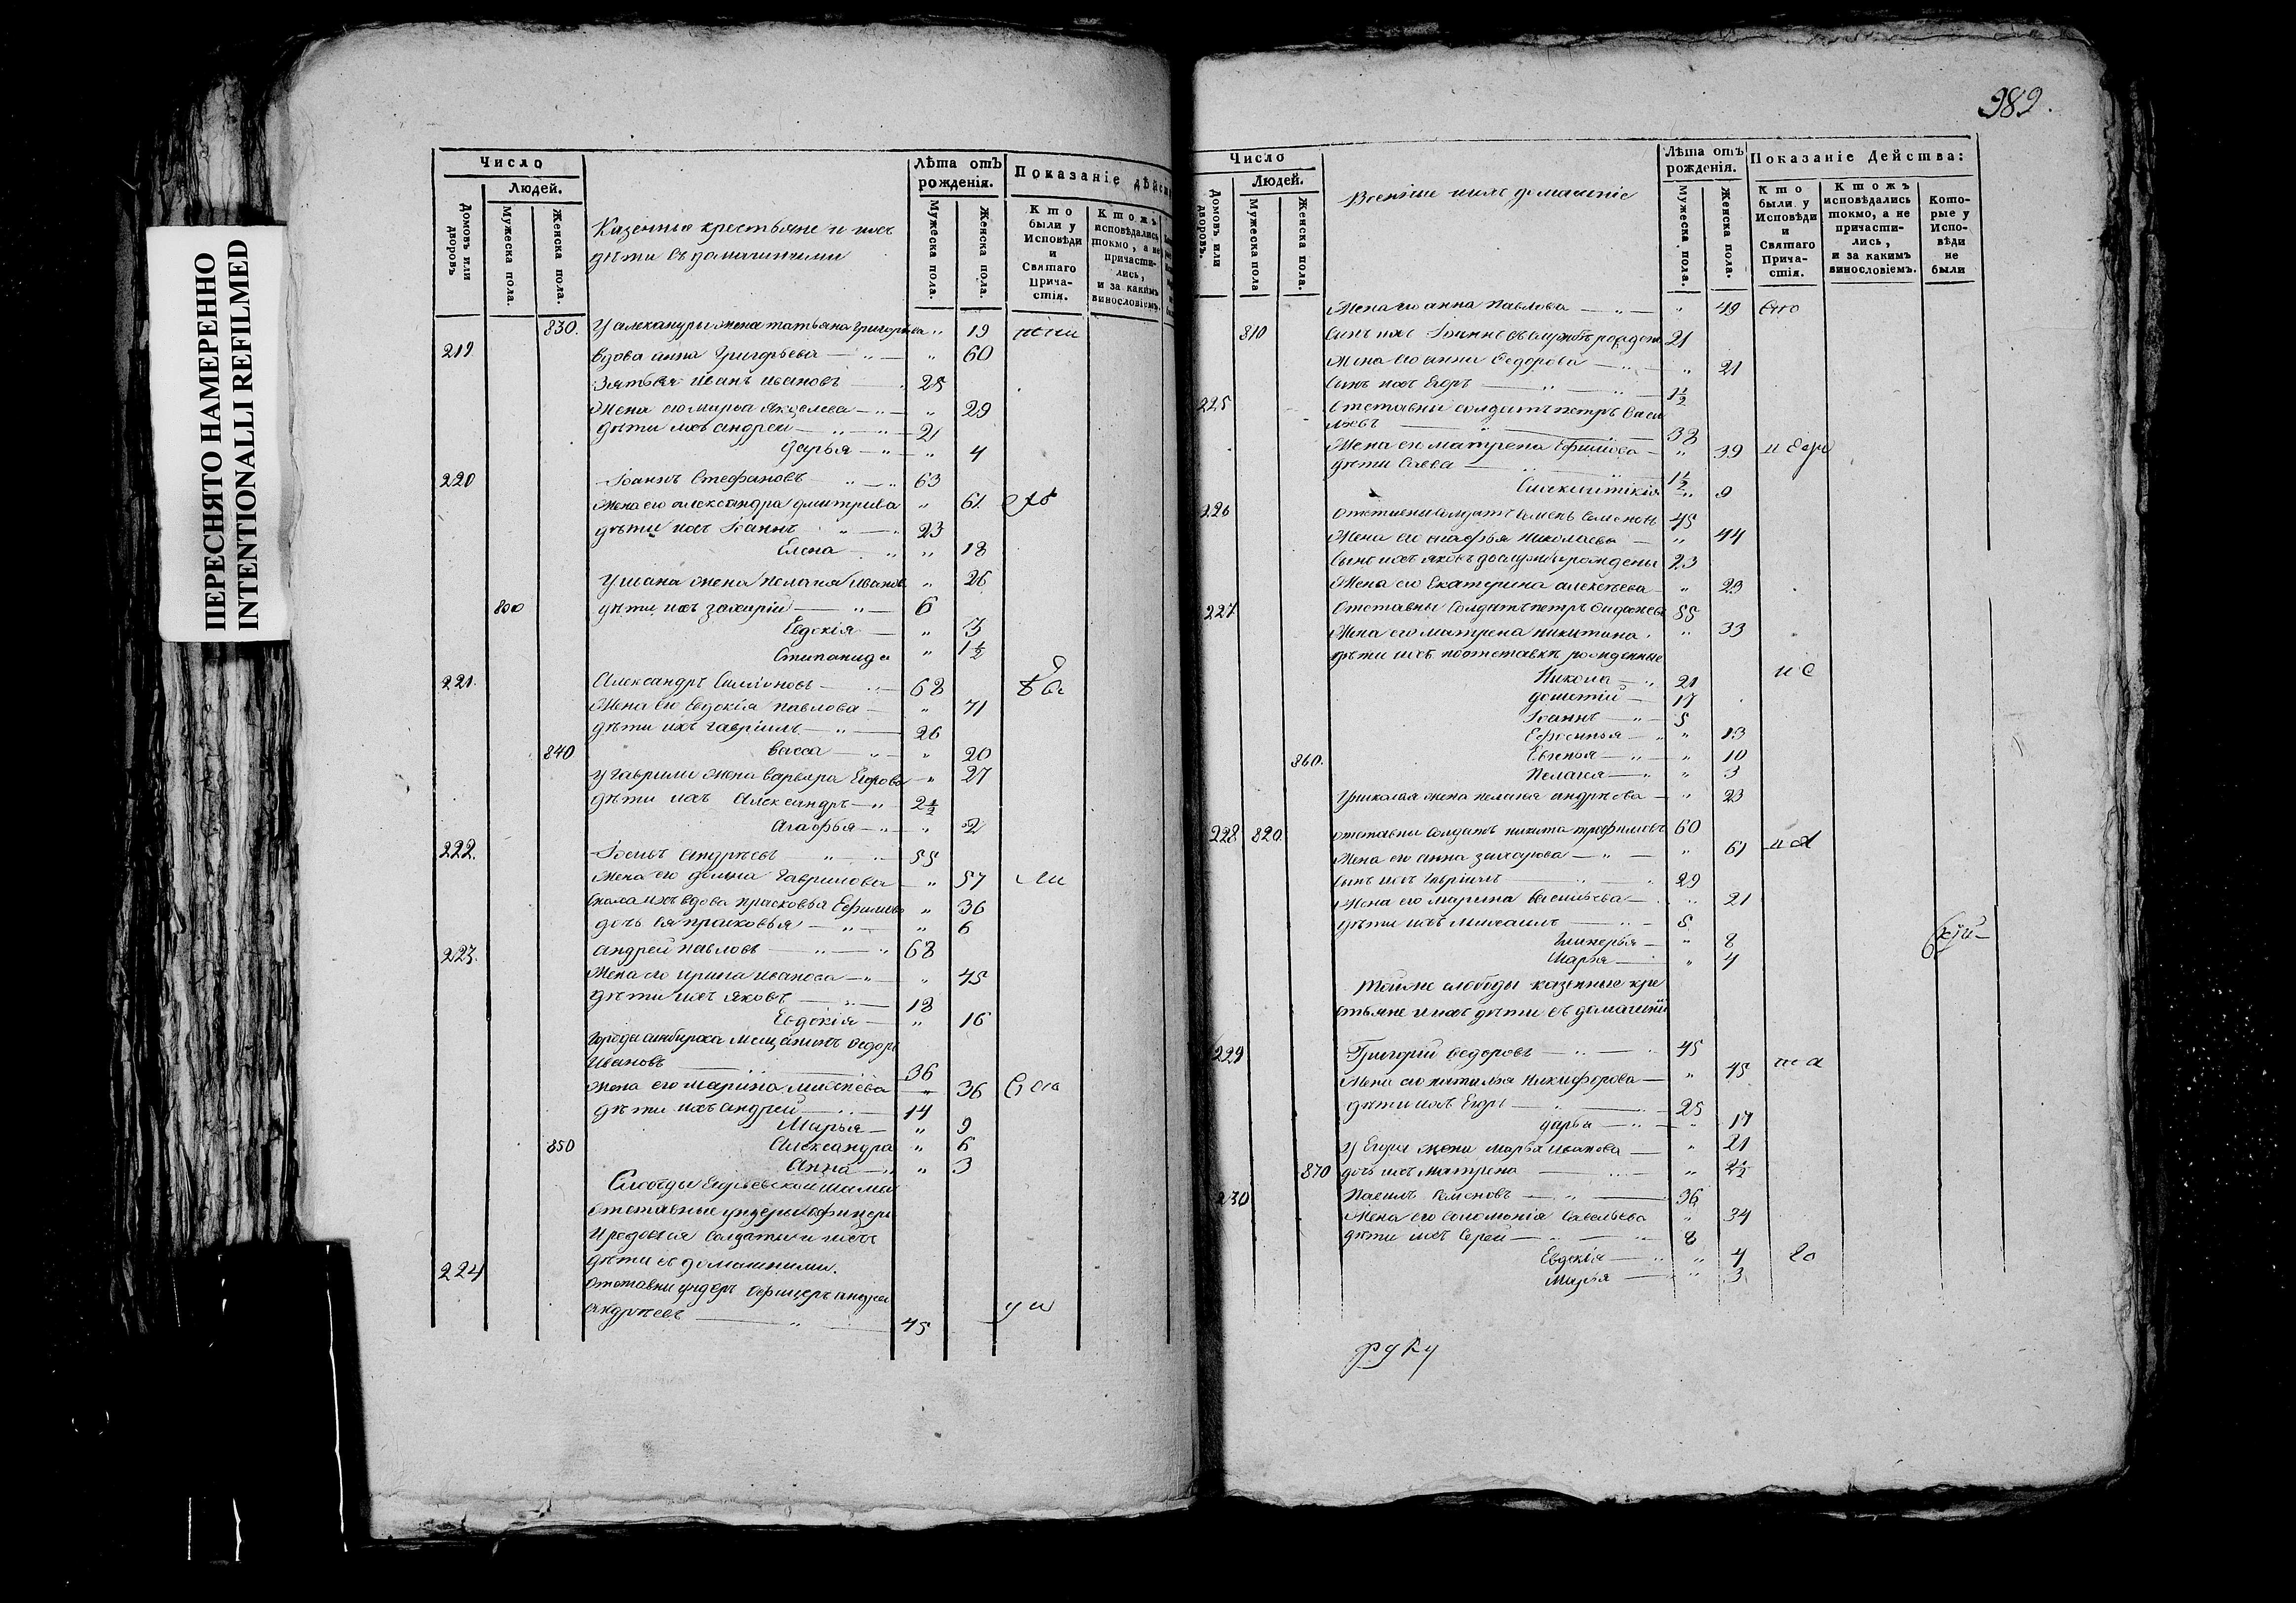 ПЕРЕСНЯТО НАМЕРЕННО
INTENTIONALLI REFILMED
Число
Людей.
Домовъ или дворовъ
Мужеска пола.
Женска пола.
Казенные крестьяне и ихъ
дѣти съ домашними
Лѣта отъ рожденія.
Мужеска пола.
Женска пола.
Показаніе дѣйст
Кто были у Исповѣди и Святаго Причастія.
Ктожъ исповѣдались токмо, а не причастились, и за какимъ винословіемъ.
830. У александры жена татьяна григорьева „ 19
219 вдова анна Григорьева „ 60
Зять ея иванъ ивановъ 25
Жена его марѳа яковлева „ 29
дѣти ихъ андрей 21
дарья „ 4
220 Іоаннъ Стефановъ 63
Жена его александра дмитрива „ 61
дѣти ихъ Іоаннъ 23
Елена „ 18
У ивана жена пелагея иванов „ 26
800 дѣти ихъ захарій 6
Евдокія „ 3
Стипанида „ 1½
221. Александръ Симіоновъ 68
Жена его Евдокія павлова „ 71
дѣти ихъ гавріилъ 26
840 васса „ 20
у гаврилы жена варвара Егорова „ 27
дѣти ихъ Александръ 2½
Агафья „ 2
222. Іосифъ андрѣевъ 55
Жена его домна гаврилова „ 57
вдова прасковья Ефимова „ 36
дочь ея прасковья „ 6
223. андрей павловъ 68
Жена его ирина иванова „ 45
дѣти ихъ яковъ 18
Евдокія „ 16
Города симбирска мещанинъ ѳедоръ
Ивановъ 36
Жена его марина „ 36
дѣти ихъ андрей 14
Марья „ 9
850 Александра „ 6
Анна „ 3
Слободы
Отставные ундеръ офицеры
и рядовыя солдаты и ихъ
дѣти съ домашними.
224 Отставны ундеръ офицеръ андрей
андрѣевъ 45
989.
Число
Людей.
Домовъ или дворовъ.
Мужеска пола
Женска пола.
Военные и ихъ домашніе
Лѣта отъ рожденія.
Мужеска пола.
Женска пола.
Показаніе Действа:
Кто были у Исповѣди и Святаго Причастія.
Ктожъ исповѣдались токмо, а не причастились, и за какимъ винословіемъ.
Которые у Исповѣди не были
Жена его анна павлова „ 49
810 Сынъ ихъ Іоаннъ въ службѣ рожден 21
Жена его анна ѳедорова „ 21
Сынъ ихъ Егоръ 1½
225 Отставны солдатъ петръ васи
льевъ 38
Жена его матрена Ефимова „ 39
дѣти Савва 1½
„ 9
226 Отставны солдатъ семенъ семеновъ 45
Жена его агафья николаева „ 44
Сынъ ихъ яковъ до службы рожденъ 23
Жена его Екатерина алексѣева „ 23
227 Отставны солдатъ петръ 55
Жена его матрена никитина „ 33
дѣти ихъ по отставкѣ рожденные
Никола 21
17
Іоаннъ 5
Ефросинья „ 13
860. Евгенья „ 10
Пелагея „ 3
У николая жена пелагея андрѣева „ 23
228 820 отставны солдатъ никита трофимовъ 60
Жена его анна захарова „ 61
Сынъ ихъ гавріилъ 29
Жена его марина васильева „ 21
дѣти ихъ михаилъ
Гликерья „ 8
Марья „ 4
Тойже слободы казенные кре
стьяне и ихъ дѣти съ домашни
229 Григорій ѳедоровъ 45
Жена его наталья никифорова „ 45
дѣти ихъ Егоръ 25
дарья „ 17
у Егора жена марья иванова „ 21
870 дочь ихъ матрена „ 2½
230 Павилъ семеновъ 36
Жена его соломонія савельева „ 34
дѣти ихъ Сергей 8
Евдокія „ 4
Марья „ 3
руку